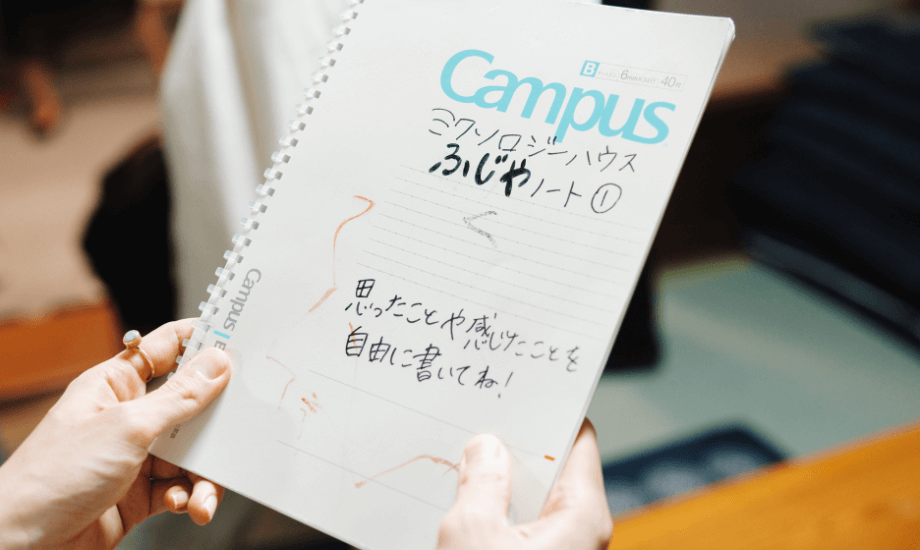 Campus
B
6mm 40
ミクソロジーハウス
ふじやノート①
思ったことや感じたことを
自由に書いてね!
Campus